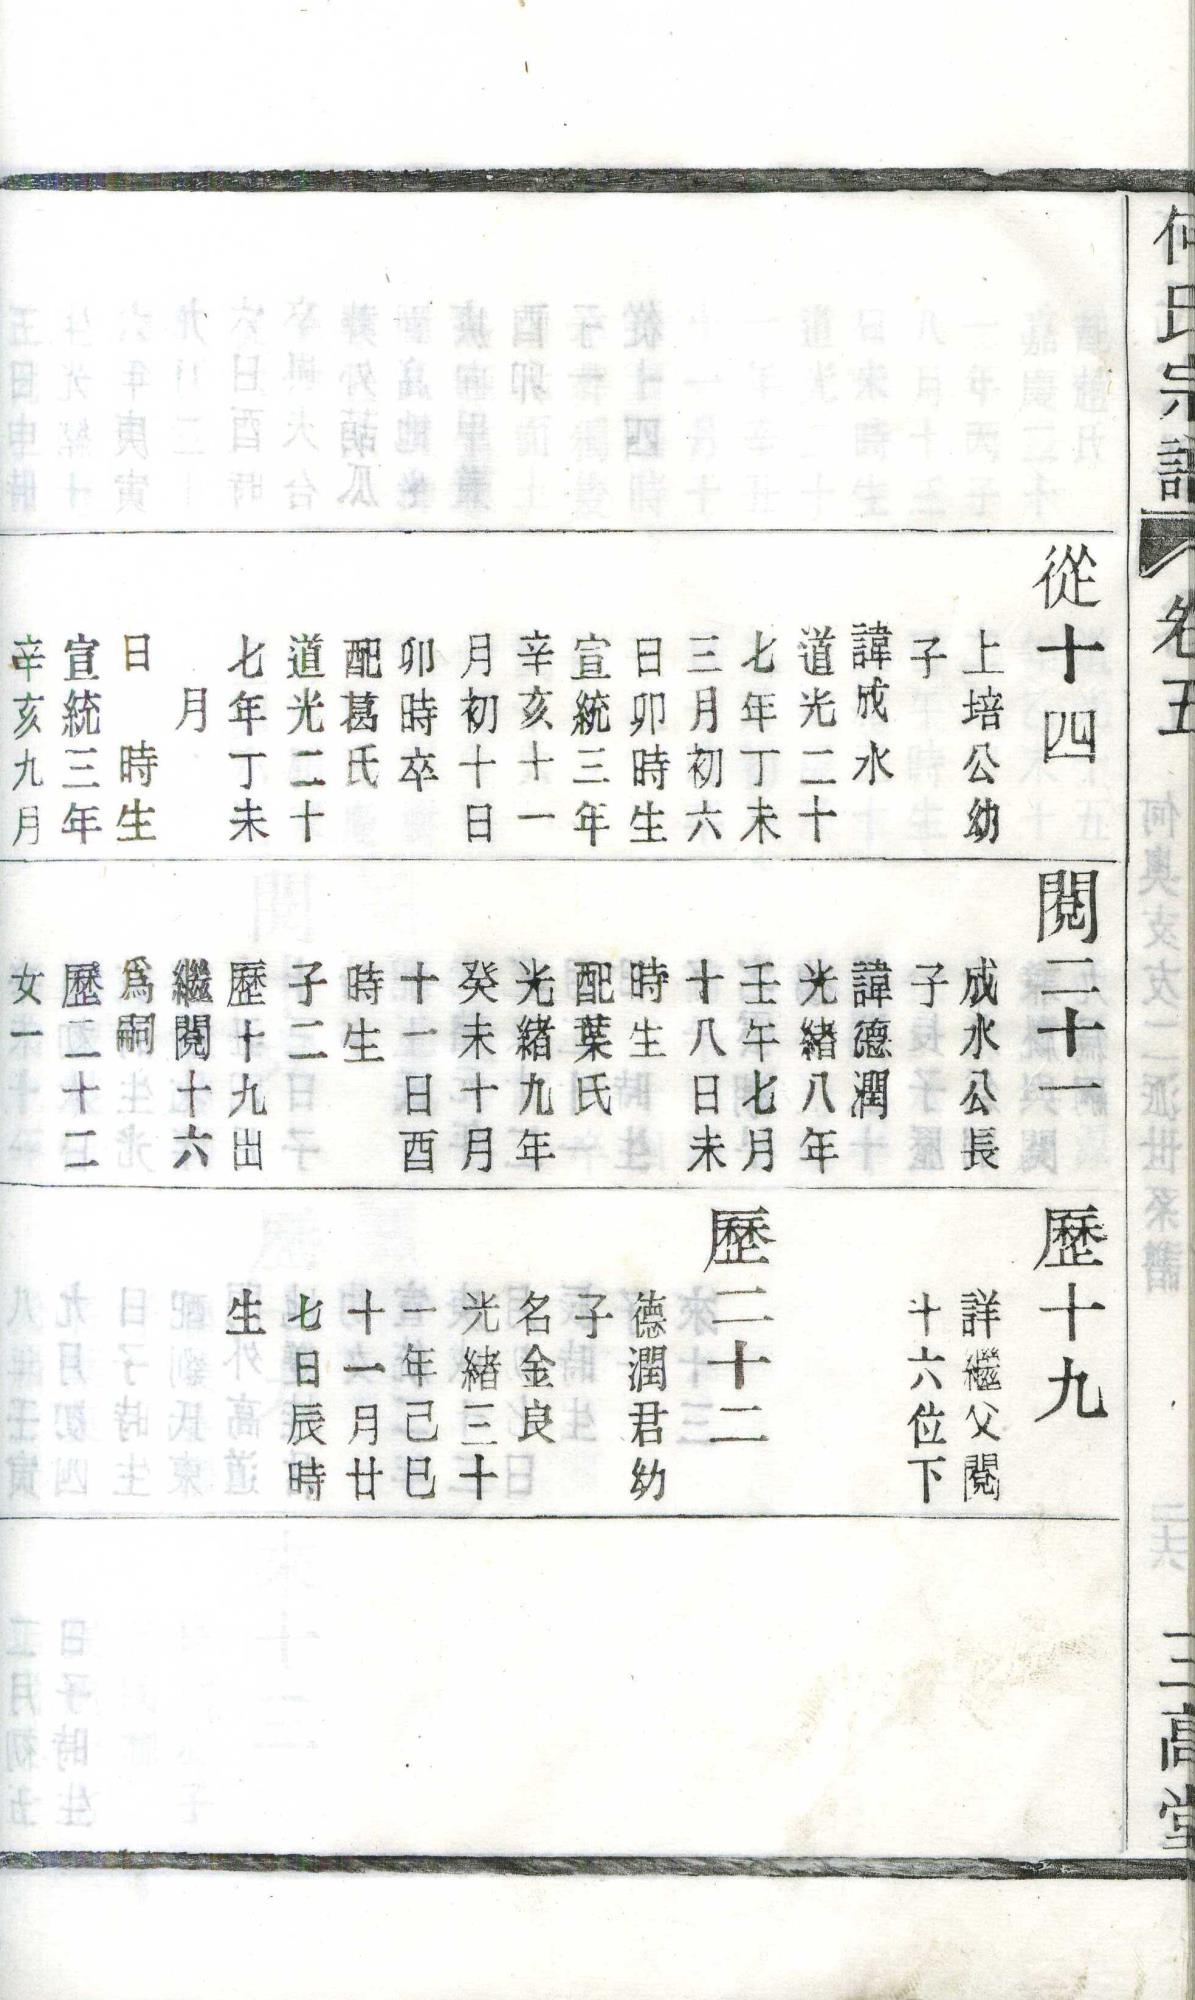 何氏宗譜
卷五
三高堂
從十四
上培公幼
子
諱成水
道光二十
七年丁未
三月初六
日卯時生
宣統三年
辛亥十一
月初十日
卯時卒
配葛氏
道光二十
七年丁未
月
日 時生
宣統三年
辛亥九月
閱二十一
成水公長
子
諱德潤
光緒八年
壬午七月
十八日未
時生
配葉氏
光緒九年
癸未十月
十一日酉
時生
子二
歷十九出
繼閱十六
爲嗣
歷二十二
女一
歷十九
詳繼父閱
十六位下
歷二十二
德潤君幼
子
名金良
光緒三十
一年己巳
十一月廿
七日辰時
生